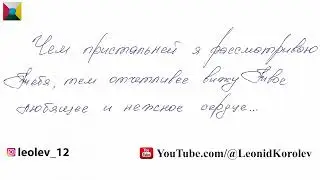 Чем пристальней я рассматриваю
Тебя, тем отчетливее вижу Твое
любящее и нежное сердце...
leolev_12
YouTube.com/@LeonidKorolev